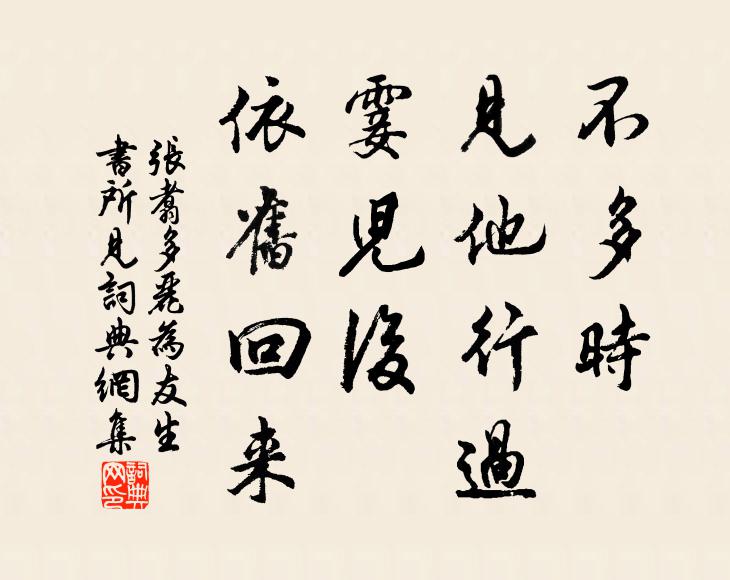 不多時
見他行過
霎兒後
依舊回来
張翥多麗為友生
書所見詞典網集
詞典网印